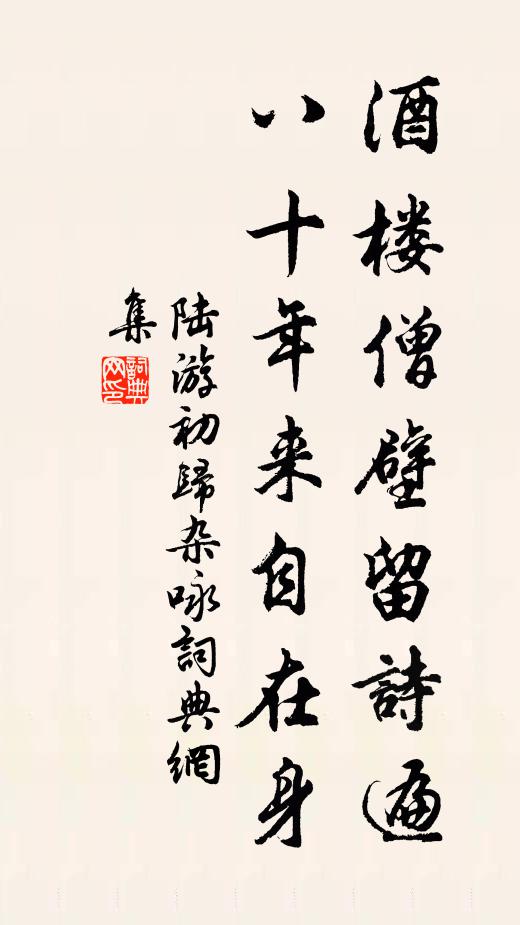 酒楼僧壁留詩遍
八十年来自在身
陆游初歸杂咏詞典網
集
詞典
网印